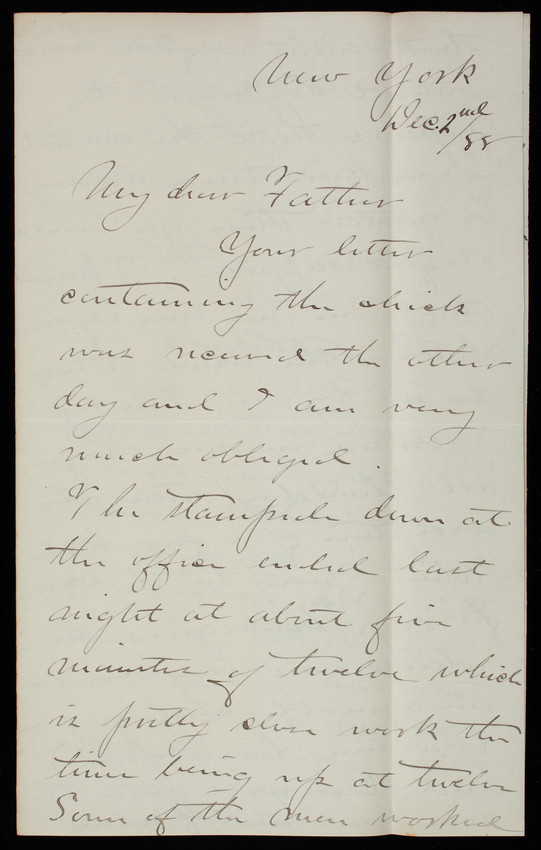 New York
Dec. 2nd/88
My dear Father
Your letter
containing the check
was received the other
day and I am very
much obliged.
The stampede down at
the office ended last
night at about five
minutes of twelve which
is pretty close work the
time being up at twelve
Some of the men worked